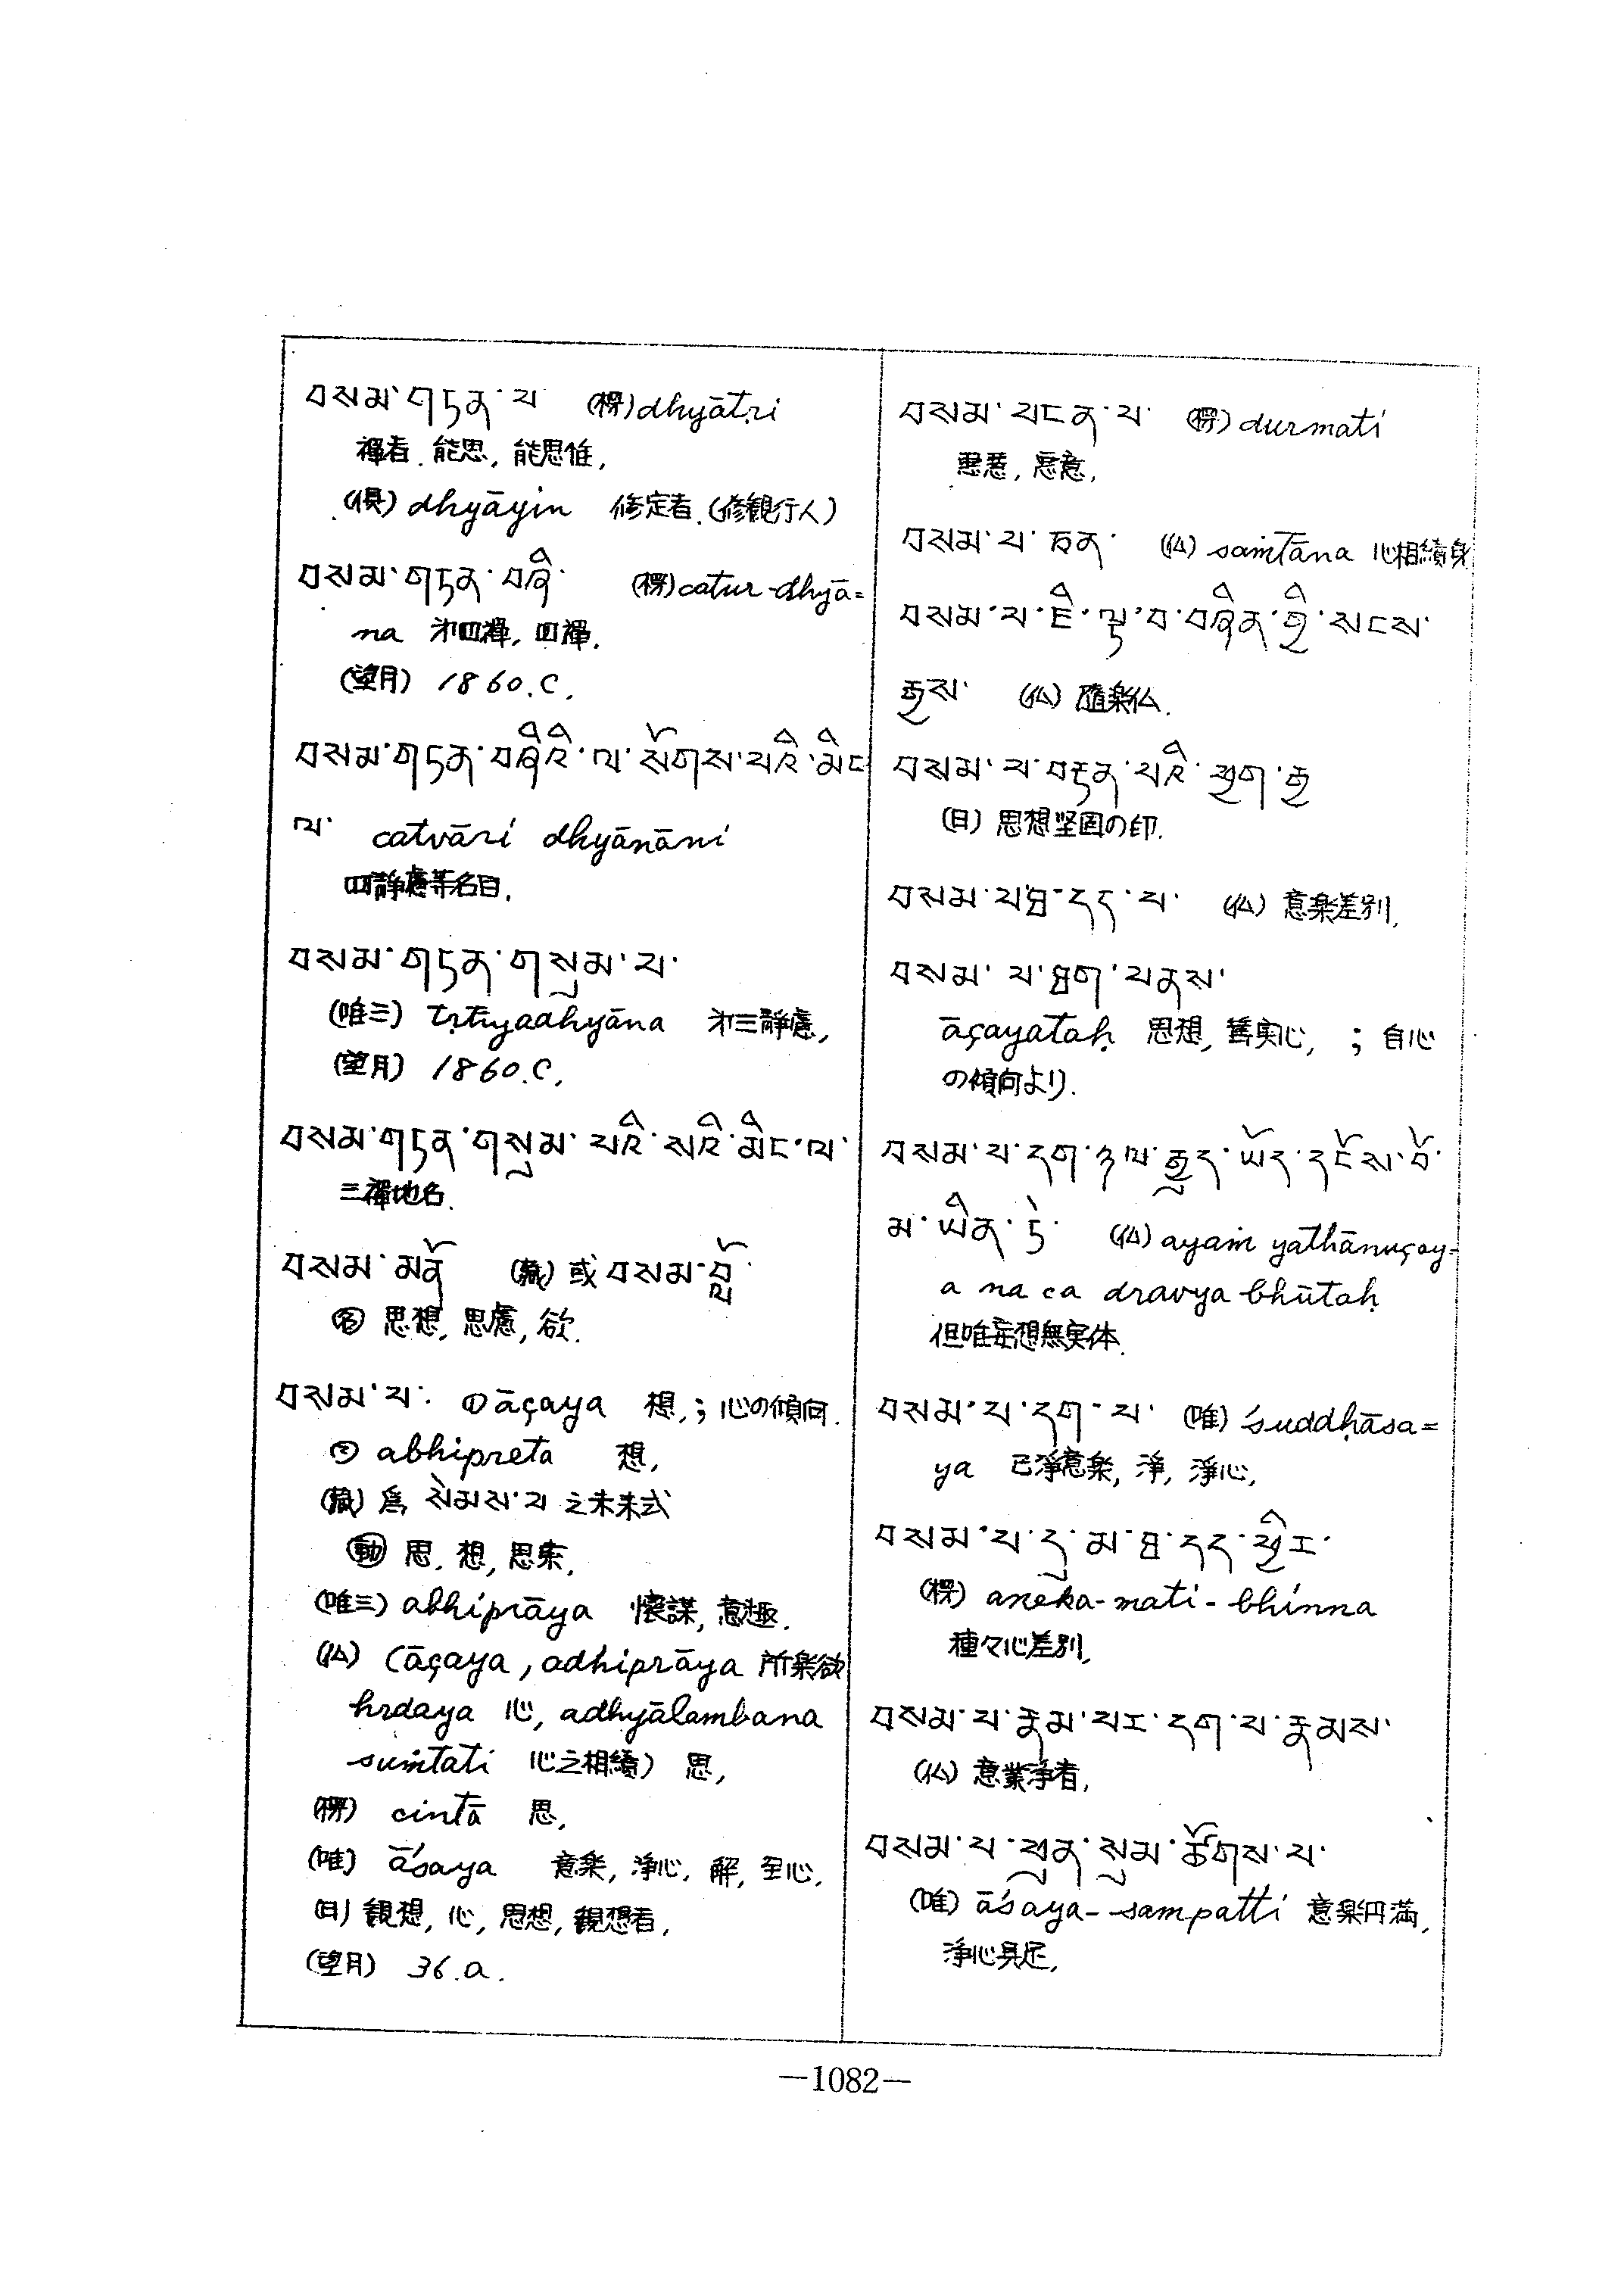 བསམ་གཏན་པ (楞) dhyātṛi
禪者, 能思, 能思惟,
(倶) dhyāyin 修定者, (修観行人)
བསམ་གཏན་བཞི་ (楞) catur-dhyā=
na 才四禪, 四禪.
(望月) 1860.C.
བསམ་གཏན་བཞིའི་ལ་སོགས་པའི་མིང་
ལ་ catvāri dhyānāni
四静慮等名目.
བསམ་གཏན་གསུམ་པ་
(唯三) tṛtīyadhyāna 才三静慮,
(望月) 1860.C.
བསམ་གཏན་གསུམ་པའི་སའི་མིང་ལ་
三禪地名.
བསམ་མནོ (藏) 或 བསམ་བློ་
㊔ 思想, 思慮, 欲.
བསམ་པ་. ① āçaya 想, ; 心の傾向.
② abhipreta 想,
(藏) 為 སེམས་པ 之未来式
動 思, 想, 思索,
(唯三) abhiprāya 懐謀, 意趣.
(仏) (āçaya, adhiprāya 所楽欲
hrdaya 心, adhyālambana
suṁtati 心之相續) 思,
(楞) cintā 思,
(唯) āśaya 意楽, 淨心, 解, 至心,
(日) 観想, 心, 思想, 観想者,
(望月) 36.a.
བསམ་པངན་པ་ (楞) durmati
悪慧, 悪意,
བསམ་པ་ཅན་ (仏) saṁtāna 心相續身
བསམ་པ་ཇི་ལྟ་བ་བཞིན་གྱི་སངས་
རྒྱས་ (仏) 隨楽仏.
བསམ་པ་བརྟན་པའི་ཕྱག་རྒྱ
(日) 思想堅固の印.
བསམ་པཐ་དད་པ་ (仏) 意楽差別,
བསམ་པ་ཐག་པནས་
āçayataḥ 思想, 舊実心, ; 自心
の傾向より.
བསམ་པ་དག་ཉལ་རྒྱུད་ཡོད་དངོས་པོ་
མ་ཡིན་ཏེ་ (仏) ayaṁ yathānuçay-
a na ca dravya bhūtaḥ
但唯妄想無実体.
བསམ་པ་དག་པ་ (唯) śuddhāsa=
ya 已淨意楽, 淨, 淨心,
བསམ་པ་དུ་མ་ཐ་དད་ཕྱིར་
(楞) aneka-mati-bhinna
種々心差別,
བསམ་པ་རྣམ་པར་དག་པ་རྣམས་
(仏) 意業淨者,
བསམ་པ་ཕུན་སུམ་ཚོགས་པ་
(唯) āśaya-sampatti 意楽円満,
淨心具足,
—1082—